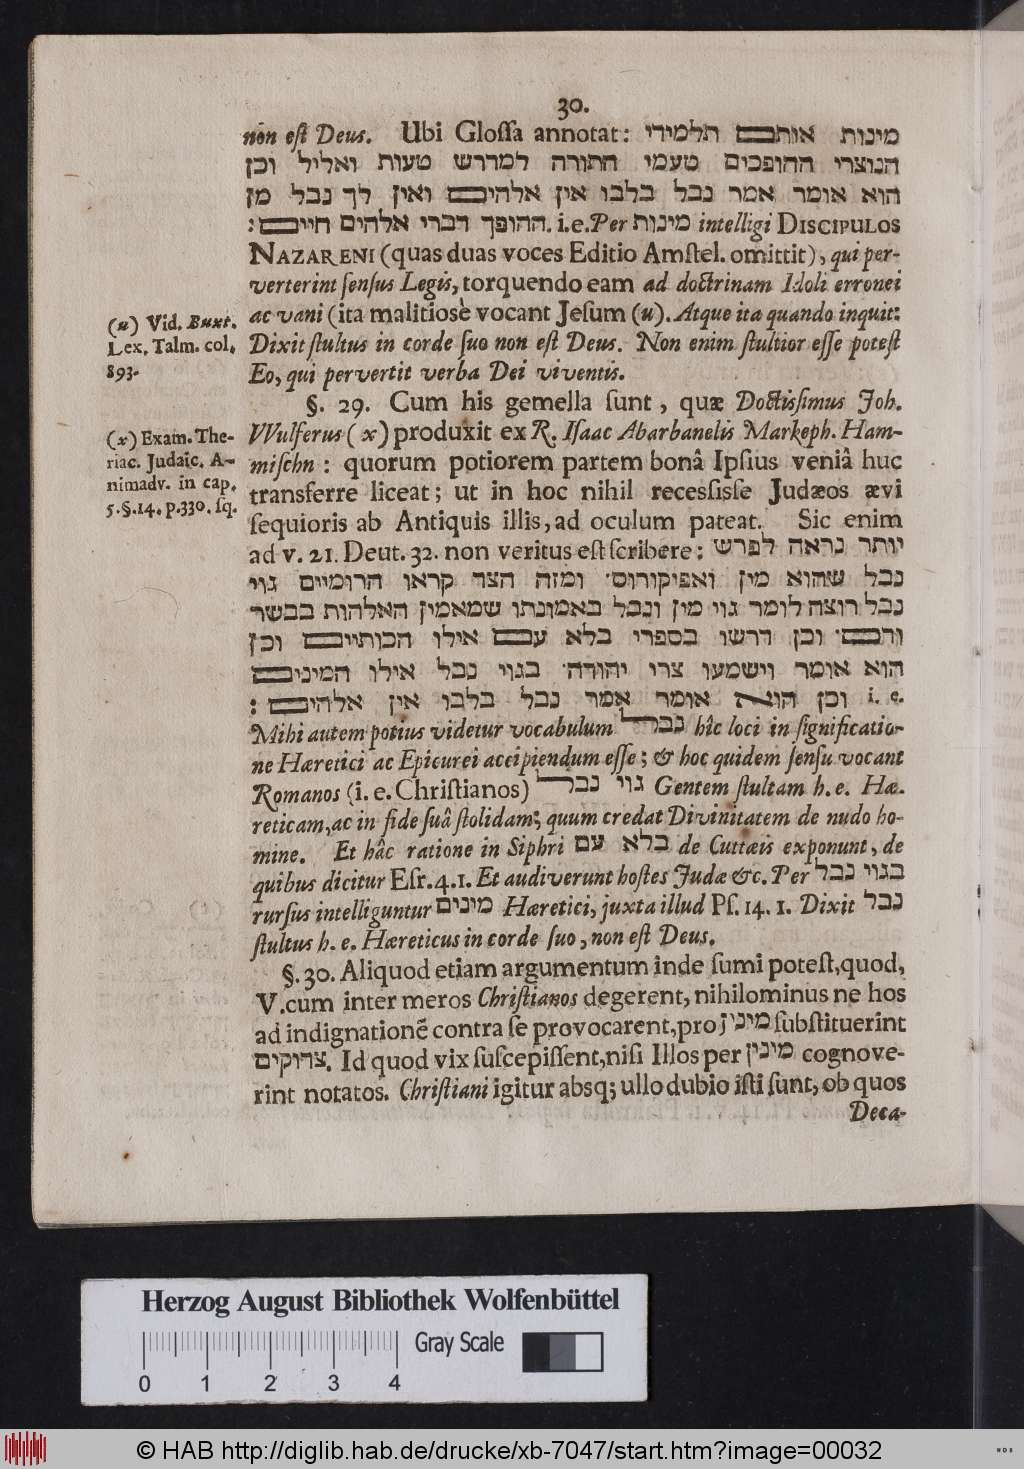 30.
non est Deus. Ubi Glossa annotat: מינות אותם תלמידי
הנוצרי ההופכים טעמי התורה למדרש טעות ואליל וכן
הוא אומר אמר נבל בלבו אין אלהים ואין לך נבל מן
ההופך דברי אלהים חיים : i.e. Per מינות intelligi DISCIPULOS
NAZARENI (quas duas voces Editio Amstel. omittit), qui per-
verterint sensus Legis, torquendo eam ad doctrinam Idoli erronei
ac vani (ita malitiosè vocant Jesum (u). Atque ita quando inquit:
Dixit stultus in corde suo non est Deus. Non enim stultior esse potest
Eo, qui pervertit verba Dei viventis.
(u) Vid. Buxt.
Lex. Talm. col.
893.
§. 29. Cum his gemella sunt, quæ Doctissimus Joh.
Wulferus (x) produxit ex R. Isaac Abarbanelis Markeph. Ham-
mischn : quorum potiorem partem bonâ Ipsius veniâ huc
transferre liceat; ut in hoc nihil recessisse Judæos ævi
sequioris ab Antiquis illis, ad oculum pateat. Sic enim
ad v. 21. Deut. 32. non veritus est scribere: יותר נראה לפרש
נבל שהוא מין ואפיקורוס· ומזה הצד קראו הרומיים גוי
נבל רוצה לומר גוי מין ונבל באמונתו שמאמין האלהות בבשר
ודם· וכן דרשו בספרי בלא עם אילו הכותיים וכן
הוא אומר וישמעו צרי יהודה· בגוי נבל אילו המינים
וכן הוא אומר אמר נבל בלבו אין אלהים : i. e.
Mihi autem potius videtur vocabulum נבל hîc loci in significatio-
ne Hæretici ac Epicurei accipiendum esse; & hoc quidem sensu vocant
Romanos (i. e. Christianos) גוי נבל Gentem stultam h. e. Hæ-
reticam, ac in fide suâ stolidam; quum credat Divinitatem de nudo ho-
mine. Et hâc ratione in Siphri בלא עם de Cuttæis exponunt, de
quibus dicitur Esr. 4. 1. Et audiverunt hostes Judæ &c. Per בגוי נבל
rursus intelliguntur מינים Hæretici, juxta illud Ps. 14. 1. Dixit נבל
stultus h. e. Hæreticus in corde suo, non est Deus.
(x) Exam. The-
riac. Judaic. A-
nimadv. in cap.
5. §. 14. p. 330. sq.
§. 30. Aliquod etiam argumentum inde sumi potest, quod,
V. cum inter meros Christianos degerent, nihilominus ne hos
ad indignationē contra se provocarent, pro מינין substituerint
צדוקים. Id quod vix suscepissent, nisi Illos per מינין cognove-
rint notatos. Christiani igitur absq; ullo dubio isti sunt, ob quos
Deca-
Herzog August Bibliothek Wolfenbüttel
Gray Scale
0 1 2 3 4
© HAB http://diglib.hab.de/drucke/xb-7047/start.htm?image=00032